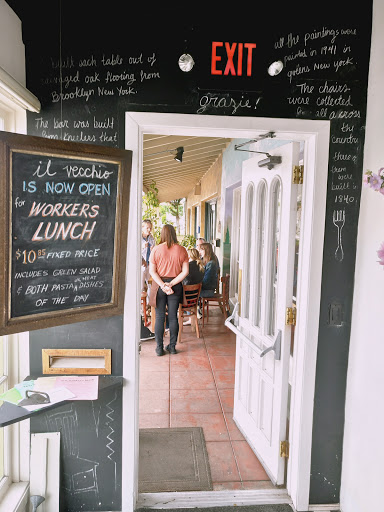 built each table out of
oak flooring from
Brooklyn New York.
The bar was built
from
EXIT
grazie!
all the paintings were
painted in 1941 in
New York.
The chairs
were collected
all across
the country
three of
them
were
built in
1840.
il vecchio
IS NOW OPEN
for WORKERS
LUNCH
$10.95 FIXED PRICE
INCLUDES GREEN SALAD
& BOTH PASTA & MEAT DISHES
OF THE DAY